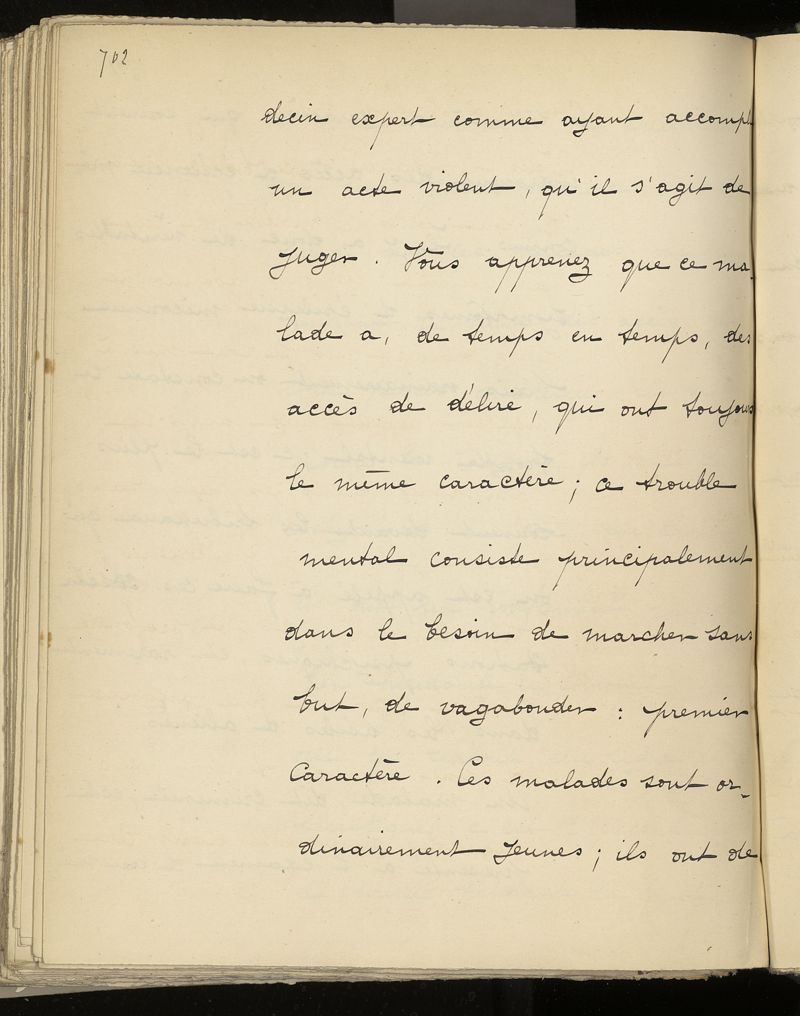 702
decin expert comme ayant accompli
un acte violent, qu'il s'agit de
juger. Vous apprenez que ce ma-
lade a, de temps en temps, des
accès de délire, qui ont toujours
le même caractère; ce trouble
mental consiste principalement
dans le besoin de marcher sans
but, de vagabonder : premier
caractère. Ces malades sont or-
dinairement jeunes; ils ont de